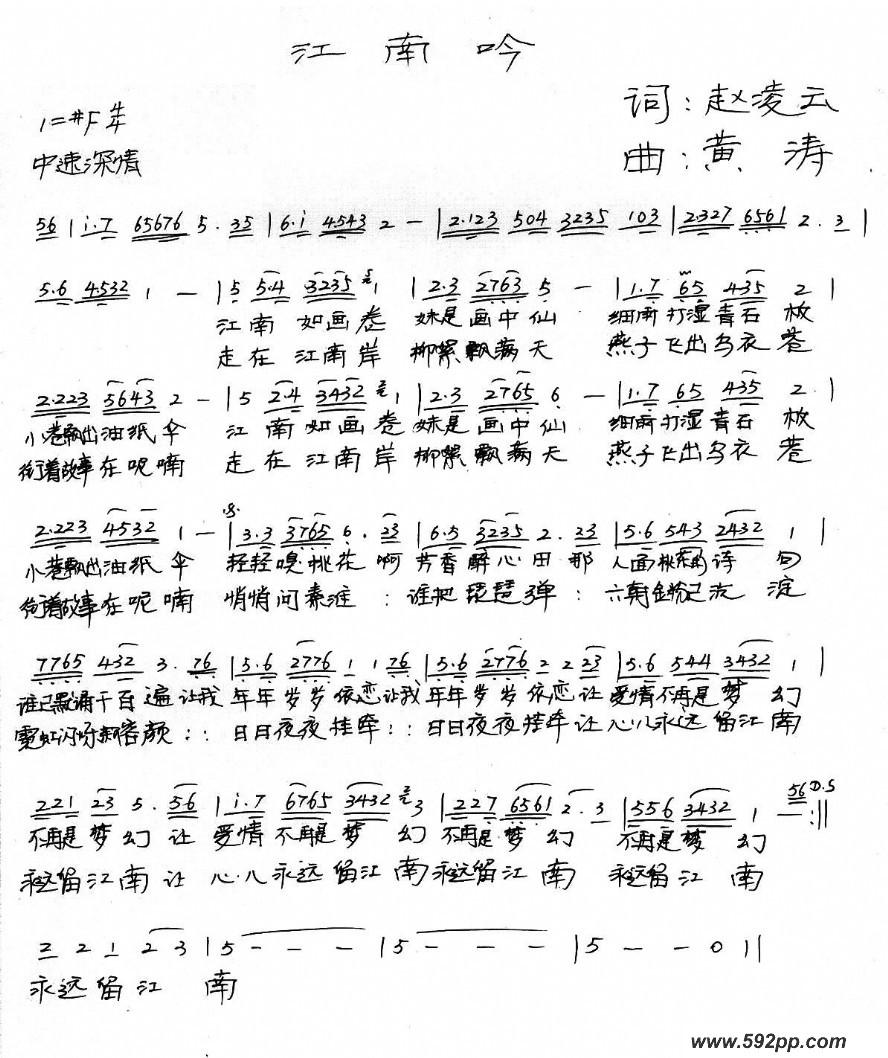 江南吟
词:赵凌云
1=#F 4/4
曲:黄涛
中速深情
56 | i.7 65676 5.35 | 6.i 4543 2 — | 2.123 504 3235 103 | 2.327 6561 2.3 |
5.6 4532 1 — | 5 5.4 3235 1 | 2.3 2763 5 — | 1.7 65 435 2 |
江南如画卷 妹是画中仙 细雨打湿青石板
走在江南岸 柳絮飘满天 燕子飞出乌衣巷
2.223 5643 2 — | 5 2.4 3432 1 | 2.3 2765 6 — | 1.7 65 435 2. |
小巷飘出油纸伞 江南如画卷 妹是画中仙 细雨打湿青石板
衔着故事在呢喃 走在江南岸 柳絮飘满天 燕子飞出乌衣巷
2.223 4532 1 — | 3.3 3765 6.23 | 6.5 3235 2.23 | 5.6 543 2432 1 |
小巷飘出油纸伞 轻轻嗅桃花啊芳香醉心田那人面桃花的诗句
衔着故事在呢喃 悄悄问秦淮:谁把琵琶弹:六朝金粉已沉淀
7765 432 3.76 | 5.6 2776 1 1 76 | 5.6 2776 2 2 23 | 5.6 544 3432 1 |
谁已默诵千百遍让我年年岁岁依恋让我年年岁岁依恋让爱情不再是梦幻
霓虹闪烁新容颜::日日夜夜挂牵::日日夜夜挂牵让心儿永远留江南
221 23 5.56 | i.7 6765 3432 3 | 227 6561 2.3 | 556 3432 1 — 56 D.S :||
不再是梦幻让爱情不再是梦幻不再是梦幻不再是梦幻
永远留江南让心儿永远留江南永远留江南永远留江南
2 2 1 2 3 | 5 — — — | 5 — — — | 5 — — 0 ||
永远留江南
www.592pp.com